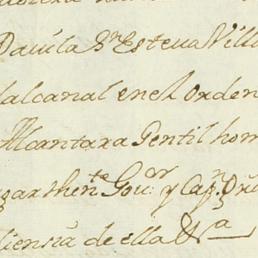 Davila Sr. Esteva Villo
alcanal en el Orden
Alcantara Gentil hom
garthente Gour. y Capn.
diencia de ella &a